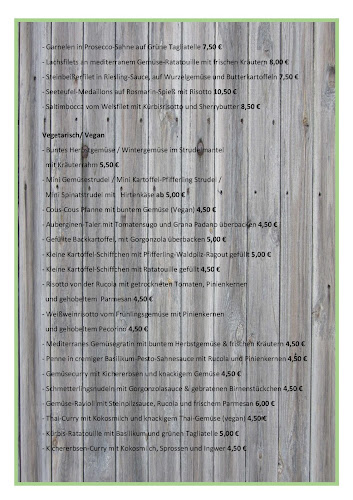 - Garnelen in Prosecco-Sahne auf Grüne Tagliatelle 7,50 €
- Lachsfilets an mediterranen Gemüse-Ratatouille mit frischen Kräutern 8,00 €
- Steinbeißerfilet in Riesling-Sauce, auf Wurzelgemüse und Butterkartoffeln 7,50 €
- Seeteufel-Medaillons auf Rosmarin-Spieß mit Risotto 10,50 €
- Saltimbocca vom Welsfilet mit Kürbisrisotto und Sherrybutter 8,50 €
Vegetarisch/ Vegan
- Buntes Herbstgemüse / Wintergemüse im Strudelmantel
mit Kräuterrahm 5,50 €
- Mini Gemüsestrudel / Mini Kartoffel-Pfifferling Strudel /
Mini Spinatstrudel mit Hirtenkäse ab 5,00 €
- Cous-Cous Pfanne mit buntem Gemüse (Vegan) 4,50 €
- Auberginen-Taler mit Tomatensugo und Grana Padano überbacken 4,50 €
- Gefüllte Backkartoffel, mit Gorgonzola überbacken 5,00 €
- Kleine Kartoffel-Schiffchen mit Pfifferling-Waldpilz-Ragout gefüllt 5,00 €
- Kleine Kartoffel-Schiffchen mit Ratatouille gefüllt 4,50 €
- Risotto von der Rucola mit getrockneten Tomaten, Pinienkernen
und gehobeltem Parmesan 4,50 €
- Weißweinrisotto vom Frühlingsgemüse mit Pinienkernen
und gehobeltem Pecorino 4,50 €
- Mediterranes Gemüsegratin mit buntem Herbstgemüse & frischen Kräutern 4,50 €
- Penne in cremiger Basilikum-Pesto-Sahnesauce mit Rucola und Pinienkernen 4,50 €
- Gemüsecurry mit Kichererbsen und knackigem Gemüse 4,50 €
- Schmetterlingsnudeln mit Gorgonzolasauce & gebratenen Birnenstückchen 4,50 €
- Gemüse-Ravioli mit Steinpilzsauce, Rucola und frischem Parmesan 6,00 €
- Thai-Curry mit Kokosmilch und knackigem Thai-Gemüse (vegan) 4,50 €
- Kürbis-Ratatouille mit Basilikum und grünen Tagliatelle 5,00 €
- Kichererbsen-Curry mit Kokosmilch, Sprossen und Ingwer 4,50 €